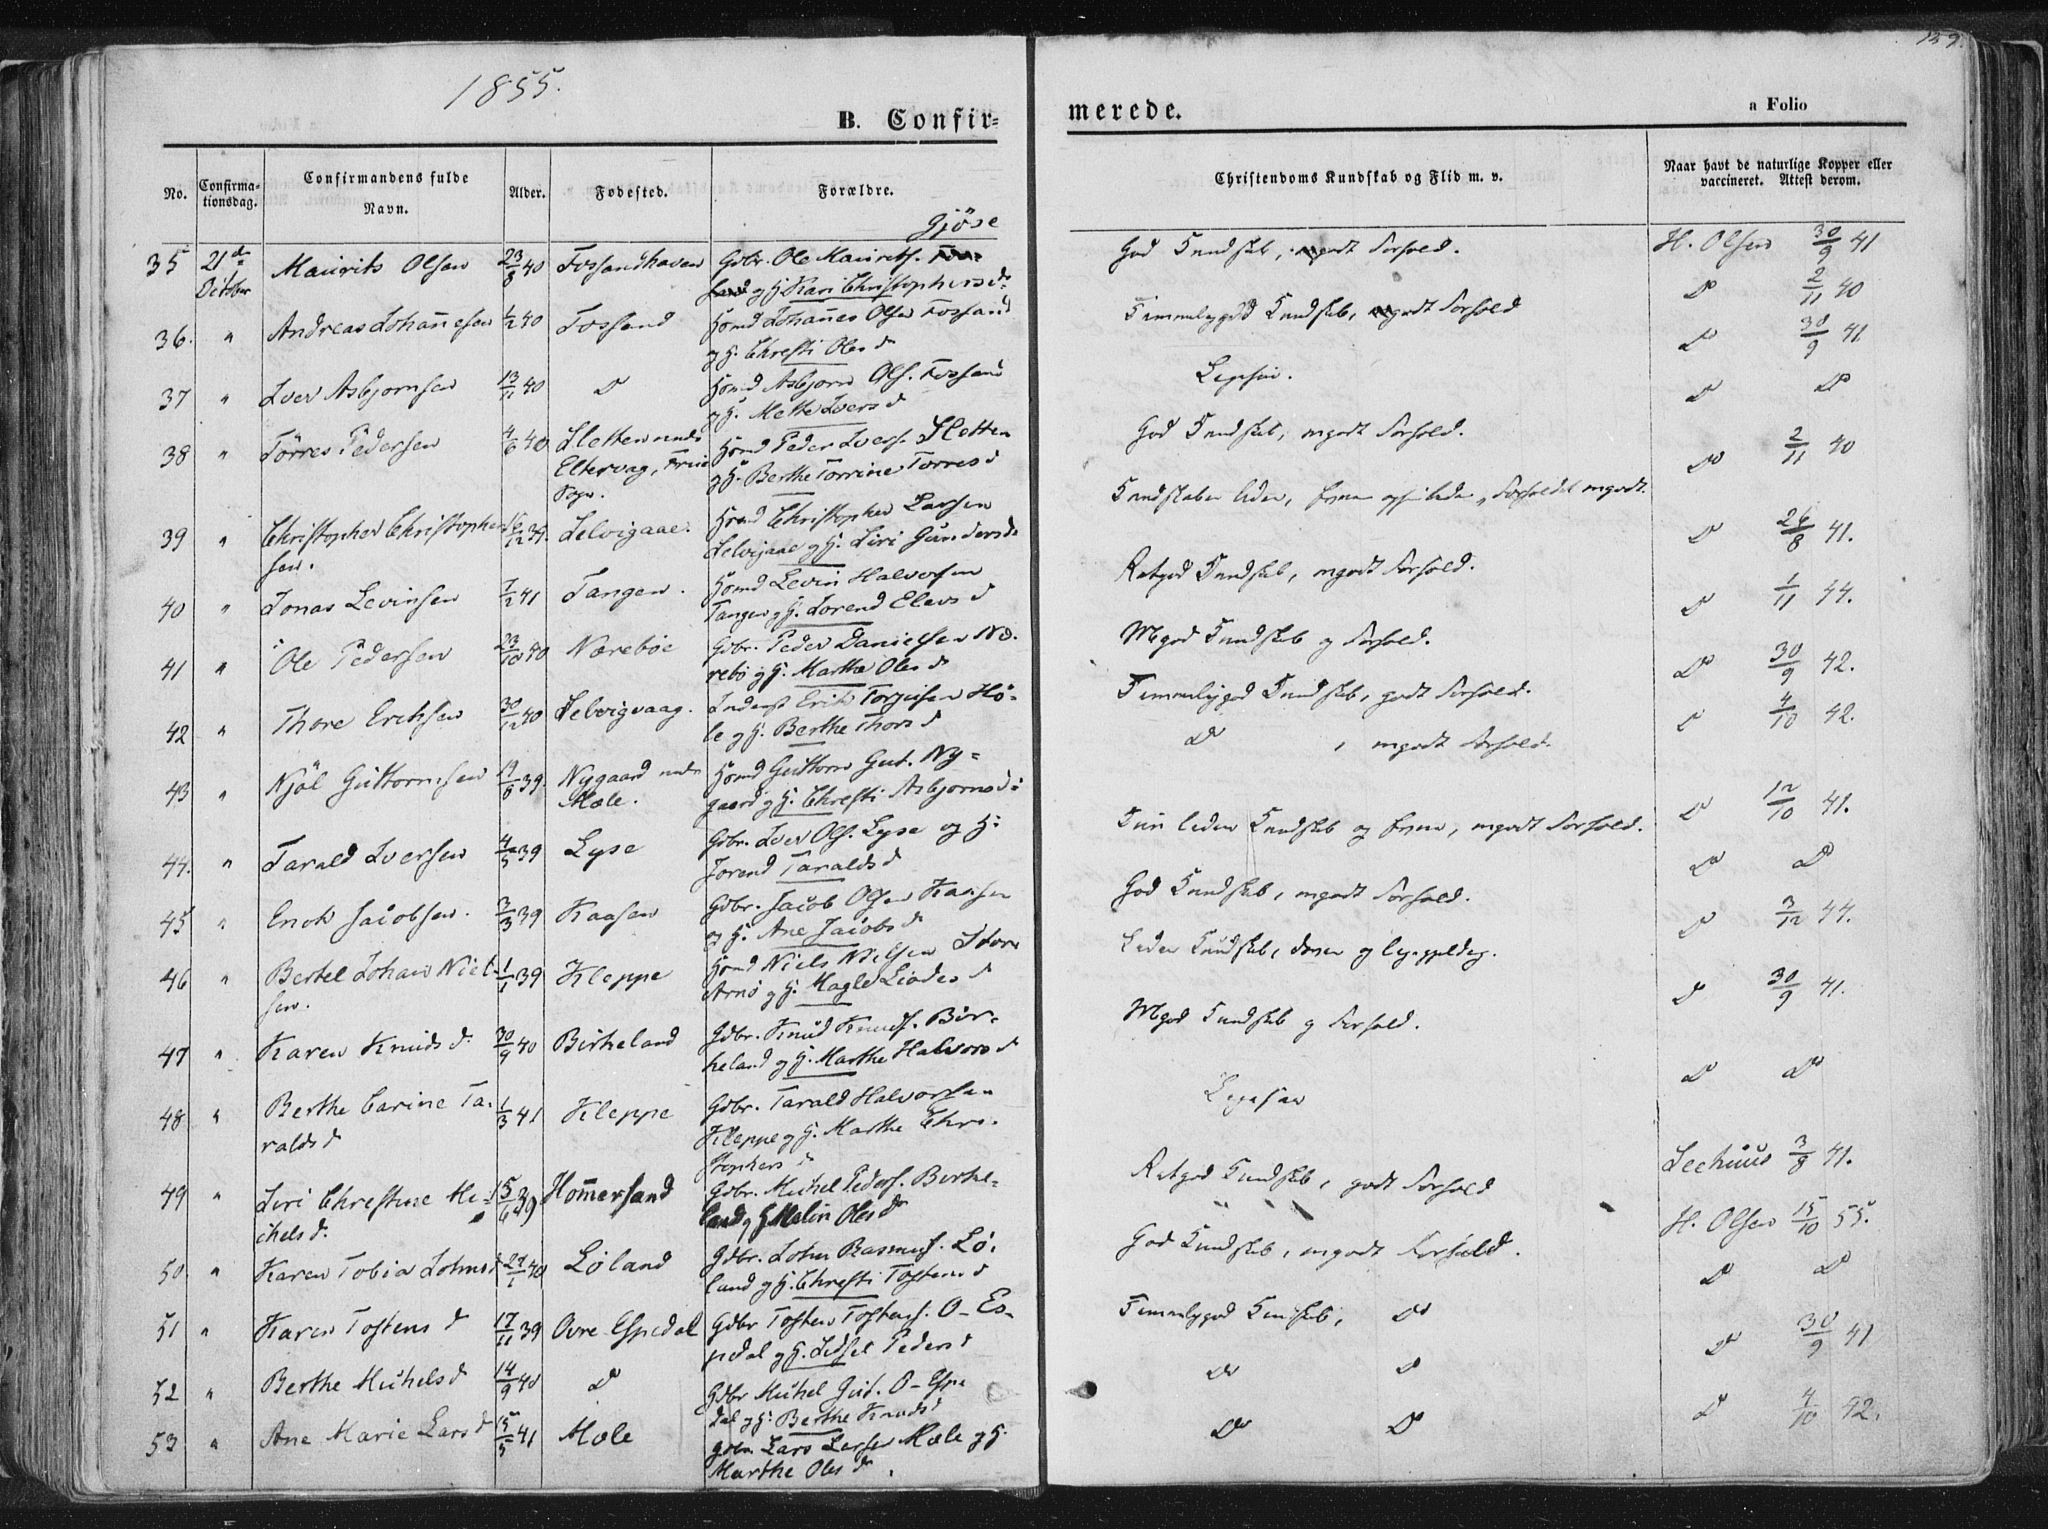 1855.
139.
B. Confir-
merede.
a Folio
No.
Confirma-
tionsdag.
Confirmandens fulde
Navn.
Alder.
Fødested.
Forældre.
Christendoms Kundskab og Flid m. v.
Naar havt de naturlige Kopper eller
vaccineret. Attest derom.
Gjöse
35 21de Maurits Olsen 23/8 40 Fossandhaven Gdbr. Ole Maurits.
October og H. Kari Christophersd.
God Kundskab, mgodt Forhold. H. Olsen 30/9 41
36. " Andreas Johañesen 1/2 40 Fossand Hsmd Johañes Olsen Fossand
og H. Chresti Olesd
Temmeligod Kundskab, mgodt Forhold Do 2/11 40
37 " Iver Asbjornsen 13/11 40 Do Hsmd Asbjorn Ols. Fossand
og H. Mette Iversd
Ligesaa. Do 30/9 41
38 " Törres Pedersen 4/6 40 Sletten under Hsmd Peder Ivers. Sletten
Eltervag, og H. Berthe Torrine Torresd
Sogn.
God Kundskab, mgodt Forhold. Do Do
39 " Christopher Christopher- 16/12 39. Selvigaae. Hsmd Christopher Larsen
sen. Selvigaae og H. Siri Gundersd.
Kundskaben liden, Forholdet mgodt. Do 2/11 40
40 " Jonas Levinsen 7/2 41 Tangen. Hsmd Levin Halvorsen
Tangen og H. Jorend Elevsd
Retgod Kundskab, mgodt Forhold. Do 26/8 41.
41 " Ole Pedersen 23/10 40 Nærebøe Gdbr. Peder Danielsen Næ-
rebø og H. Marthe Olesd
Mgod Kundskab og Forhold. Do 1/11 44.
42 " Thore Ericksen 30/12 40 Selvigvaag. Inderst Erik Torgersen Hö-
le og H. Berthe Thorsd
Temmeligod Kundskab, godt Forhold. Do 30/9 42.
43 " Kjöl Guttormsen 19/8 39. Nygaard under Hsmd Guttorm Gut. Ny-
Mæle. gaard og H. Chresti Asbjornsd:
Do, mgodt Forhold. Do 4/10 42.
44. " Tarald Iversen 4/5 39 Lyse Gdbr. Iver Ols. Lyse og H.
Jorend Taraldsd
Kun liden Kundskab og, mgodt Forhold. Do 12/10 41.
45 " Enok Jacobsen. 3/3 39 Kaasen Gdbr. Jacob Olsen Kaasen
og H. Ane Jacobsd
God Kundskab, mgodt Forhold. Do Do
46 " Bertel Johan Niel- 1/1 39 Kleppe Hsmd Niels Nielsen Store
sen. Arnø og H. Magle Liodesd
Liden Kundskab, Do 3/12 44.
47 " Karen Knudsd. 30/9 40 Birkeland Gdbr. Knud Knuds. Bir-
keland og H. Marthe Halvorsd
Mgod Kundskab og Forhold. Do 30/9 41.
48 " Berthe Carine Ta- 1/3 41 Kleppe Gdbr. Tarald Halvorsen
raldsd Kleppe og H. Marthe Chri-
stophersd
Ligesaa Do Do
49 " Siri Chrestine Mi- 15/6 39 Hom̃ersand Gdbr. Michel Peders. Birke-
chelsd. land og H. Malin Olesd
Retgod Kundskab, godt Forhold Seehuus 3/8 41.
50. " Karen Tobia Johnsd 27/1 40 Løland Gdbr. John Rasmus. Lö-
land og H. Chresti Tostensd
God Kundskab, mgodt Forhold. H. Olsen 15/10 55.
51 " Karen Tostensd 17/11 39 Ovre Espedal Gdbr Tosten Tostens. O-Es-
pedal og H. Pedersd
Temmeligod Kundskab, Do Do Do
52 " Berthe Michelsd 14/9 40 Do Gdbr Michel Gut. O-Espe
dal og H. Berthe Knudsd
Do Do Do 30/9 41
53 " Ane Marie Larsd 15/5 41 Mæle Gdbr. Lars Larsen Mæle og H.
Marthe Olesd.
Do Do Do 4/10 42.